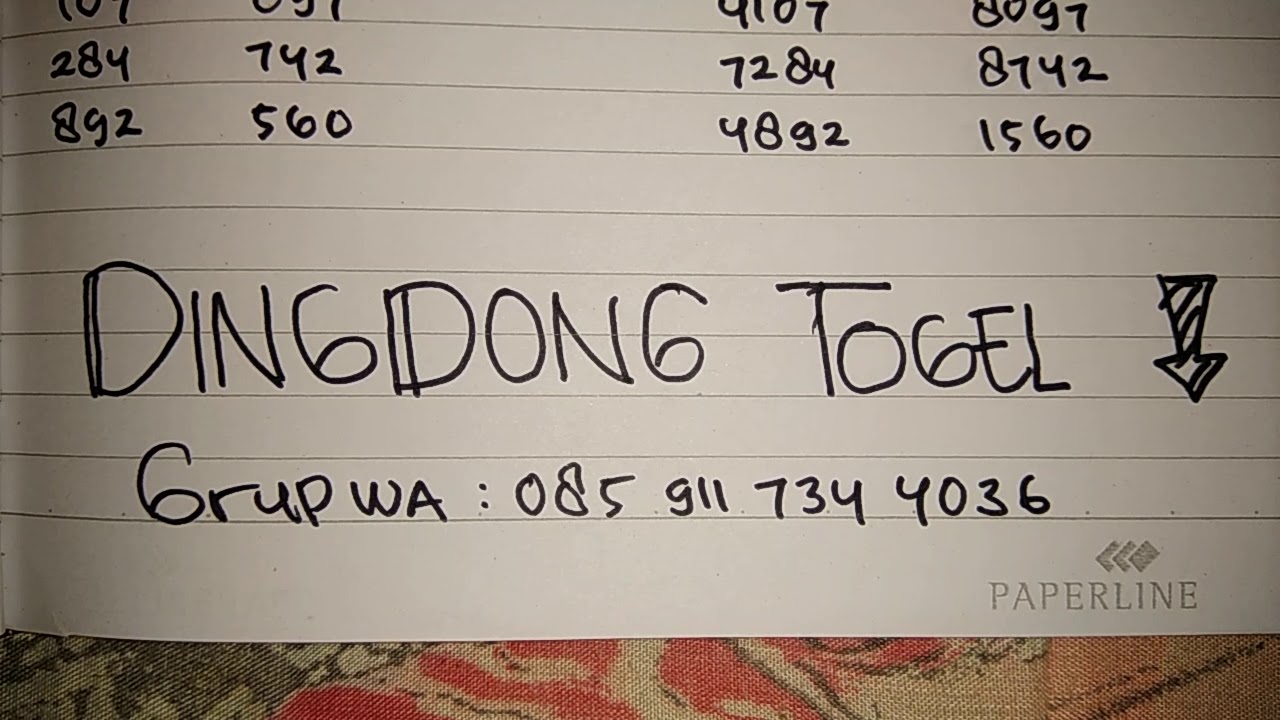 107 097 4107 8097
284 742 7284 8742
892 560 4892 1560
DINGDONG TOGEL
Grup WA : 085 911 734 4036
PAPERLINE